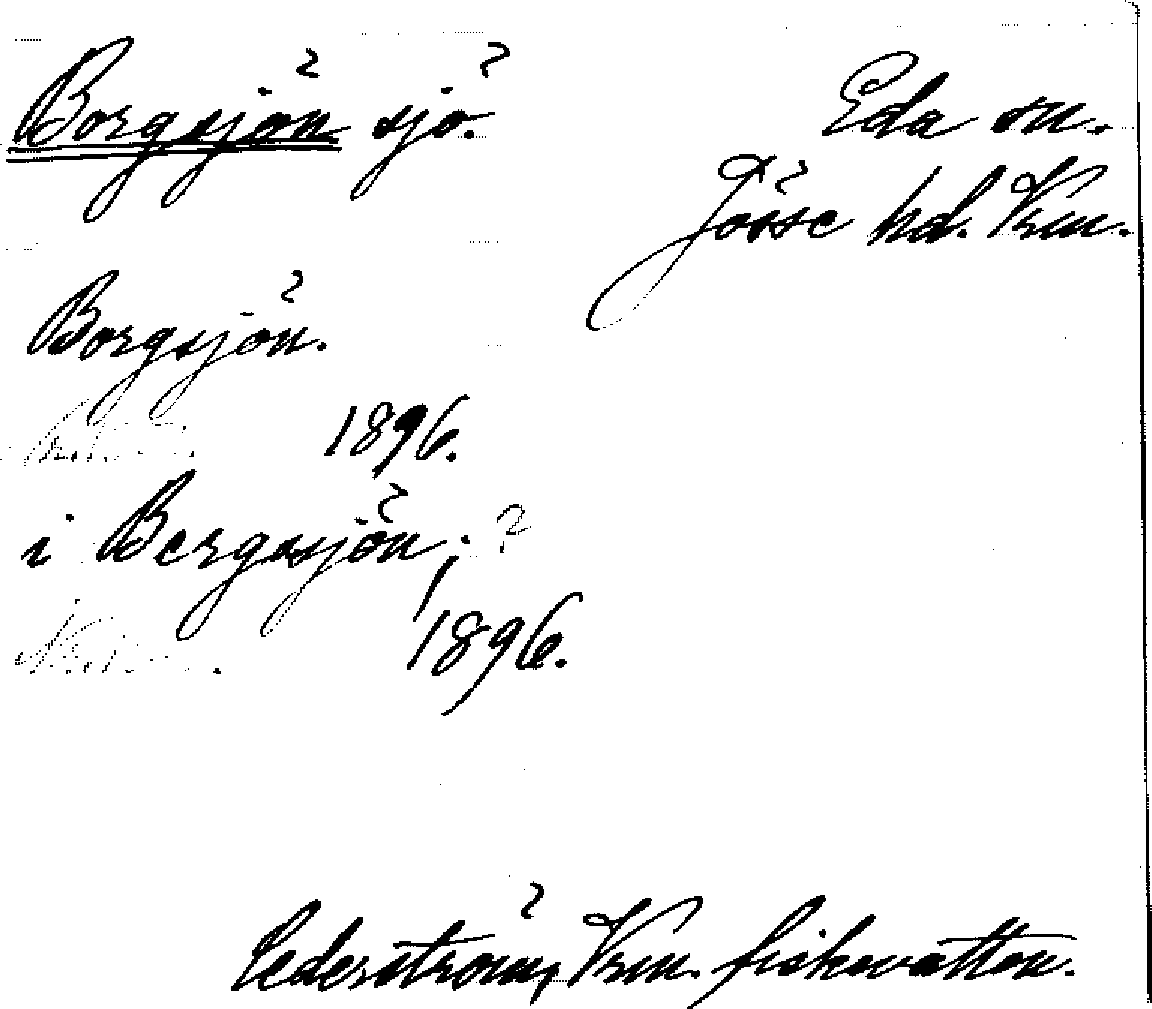 Borgsjön sjö. Eda sn.
Jösse hd. Vrm.
Borgsjön.
1896.
i Bergasjön; ?
1896.
Cederström, Vrm. fiskevatten.